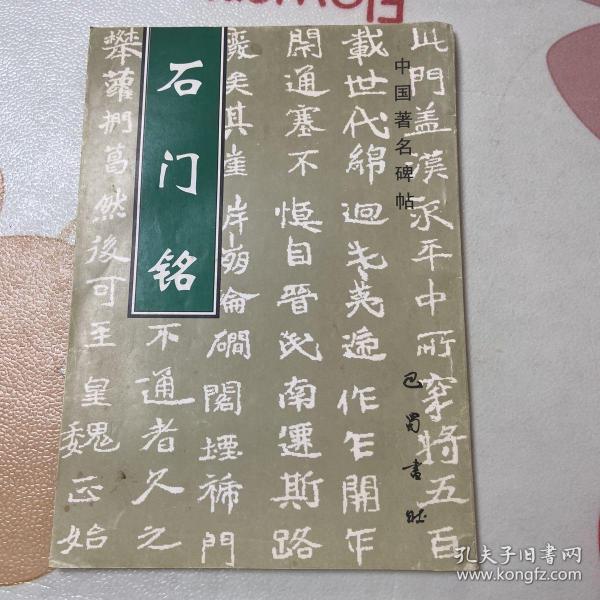 石门铭
中国著名碑帖
巴蜀書社
此門盖漢永平中所穿將五百
載世代綿迴戎夷遞作乍開乍
閉通塞不恒自晉氏南遷斯路
廢矣其崖岸崩淪磵閣堙褫門
不通者久之
攀蘿捫葛然後可至皇魏正始
Flower
孔夫子旧书网
www.kongfz.com